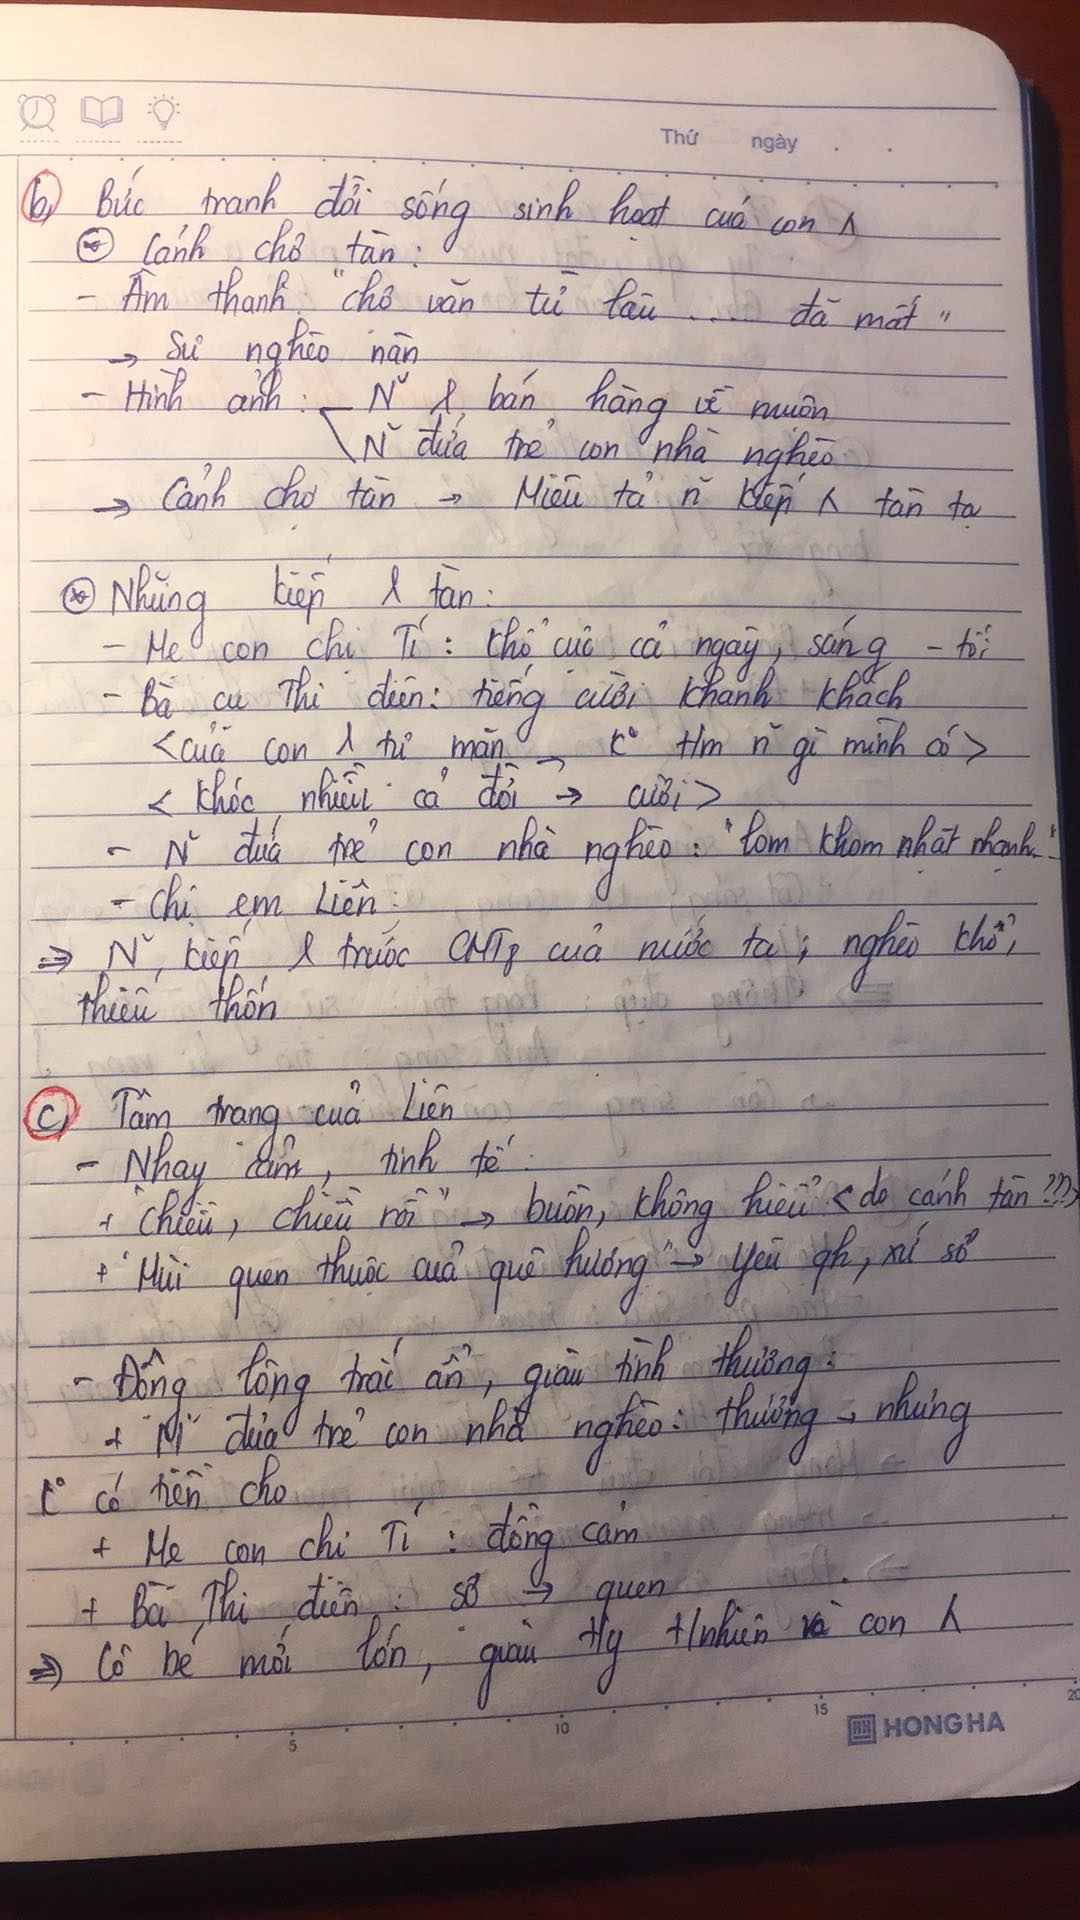 Thứ ngày . .
b, Bức tranh đời sống sinh hoạt của con λ
* Cảnh chợ tàn:
- Âm thanh: "chợ vãn từ lâu .... đã mất"
→ Sự nghèo nàn
- Hình ảnh: N~ λ bán hàng về muộn
N~ đứa trẻ con nhà nghèo
→ Cảnh chợ tàn → Miêu tả n~ kiếp λ tàn tạ
* Những kiếp λ tàn:
- Mẹ con chị Tí: khổ cực cả ngày, sáng - tối
- Bà cụ Thi điên: tiếng cười khanh khách
<của con λ tự mãn, k° n~ gì mình có>
< khóc nhiều cả đời → cười>
- N~ đứa trẻ con nhà nghèo: "lom khom nhặt nhạnh.."
- Chị em Liên:
⇒ N~ kiếp λ trước CMT8 của nước ta; nghèo khổ,
thiếu thốn
c, Tâm trạng của Liên
- Nhạy cảm, tinh tế:
+ "chiều, chiều rồi" → buồn, không hiểu <do cảnh tàn???>
+ "Mùi quen thuộc của quê hương" → yêu qh, xứ sở
- Động lòng trắc ẩn, giàu tình thương:
+ N~ đứa trẻ con nhà nghèo: thương → nhưng
k° có tiền cho
+ Mẹ con chị Tí: đồng cảm
+ Bà Thi điên: sợ → quen
⇒ Cô bé mới lớn, giàu t/y t/nhiên và con λ
5 10 15 20
HONG HA